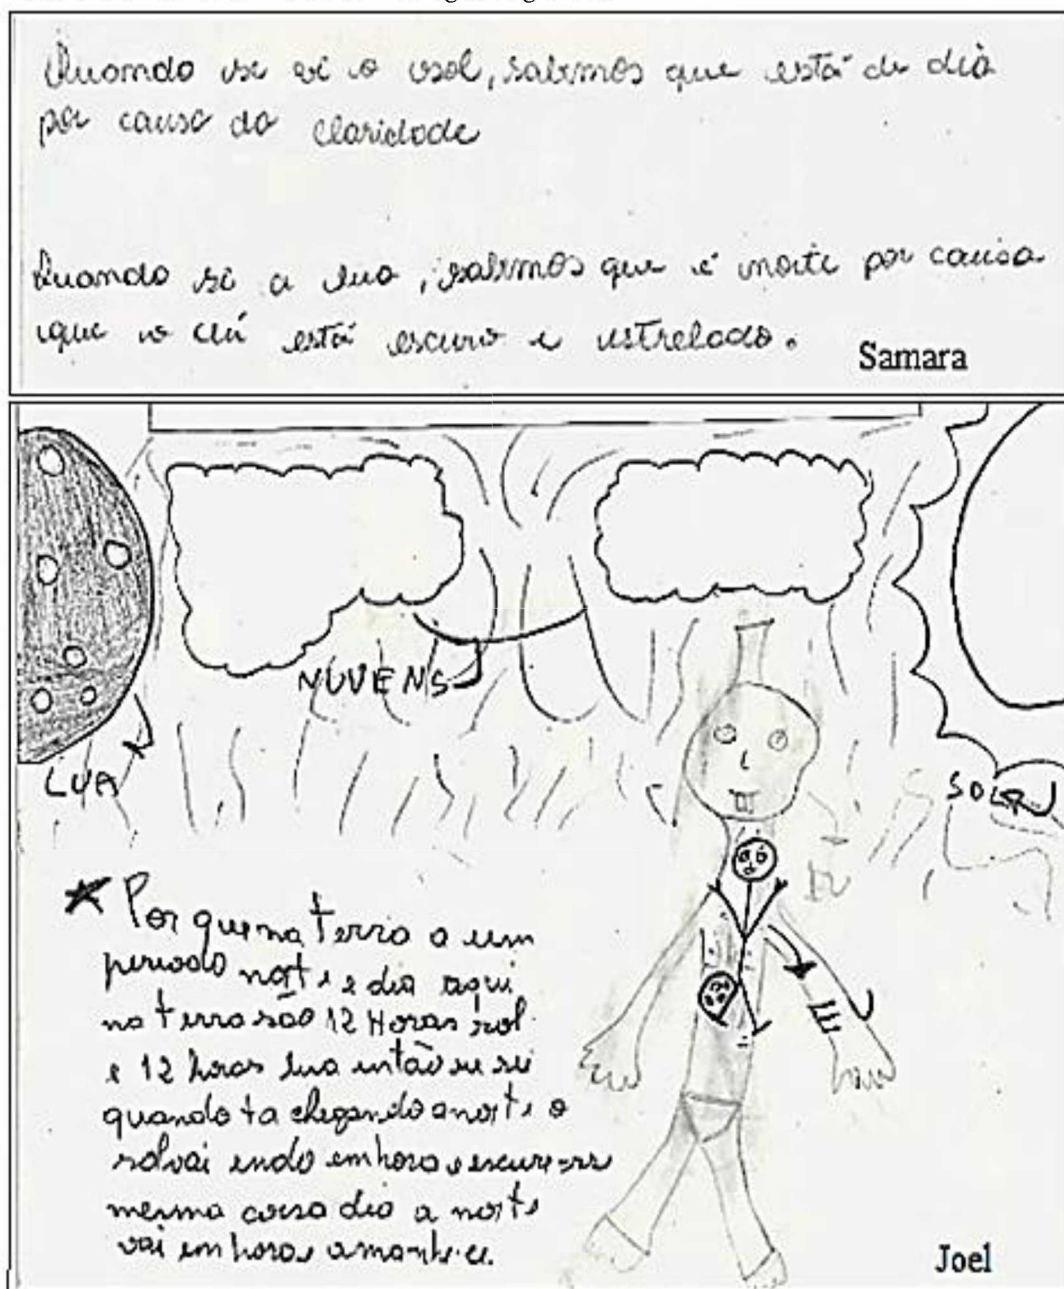 Quando se vê o sol, sabemos que está de dia
por causa da claridade
Quando vê a lua, sabemos que é noite por causa
que o céu está escuro e estrelado.
Samara
NUVENS
LUA
SOL
Por que na terra a um
periodo noite e dia aqui
na terra são 12 Horas sol
e 12 horas lua então eu sei
quando ta chegando a noite o
sol vai indo embora e escurece
mesma coisa dia a noite
vai embora e amanhece.
Joel